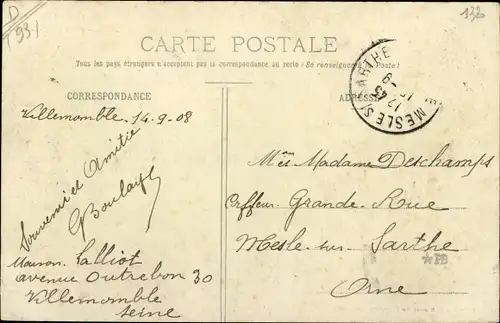 D
(93)
132
CARTE POSTALE
Tous les pays étrangers n'acceptent pas la correspondance au recto (Se renseigner à la Poste)
CORRESPONDANCE
ADRESSE
MESLE S/ SARTHE
Villemomble 14-9-08
Souvenir et Amitié
GBoulay
Maison Lalliot
avenue Outrebon 30
Villemomble
Seine
Madame Deschamps
Coiffeur Grande Rue
Mesle-sur-Sarthe
★PB
Orne